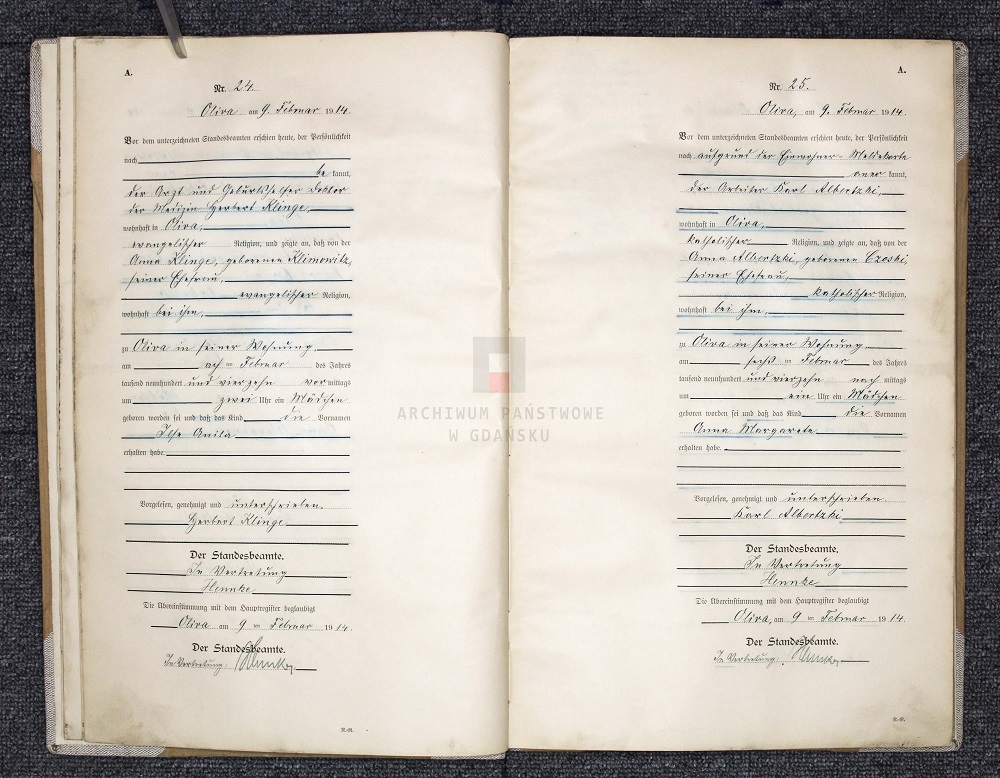 A.
Nr. 24.
Oliva am 9. Februar 1914.
Vor dem unterzeichneten Standesbeamten erschien heute, der Persönlichkeit
nach
be kannt,
der Arzt und Geburtshelfer Doktor
der Medizin Herbert Klinge,
wohnhaft in Oliva,
evangelischer Religion, und zeigte an, daß von der
Anna Klinge, geborenen Klimowitz,
seiner Ehefrau,
evangelischer Religion,
wohnhaft bei ihm,
zu Oliva in seiner Wohnung
am acht ten Februar des Jahres
tausend neunhundert und vierzehn vor mittags
um zwei Uhr ein Mädchen
geboren worden sei und daß das Kind die Vornamen
Ilse Anita
erhalten habe.
Vorgelesen, genehmigt und unterschrieben.
Herbert Klinge
Der Standesbeamte.
In Vertretung
Hennke
Die Übereinstimmung mit dem Hauptregister beglaubigt
Oliva am 9 ten Februar 1914.
Der Standesbeamte.
In Vertretung: Hennke
A.
Nr. 25.
Oliva, am 9. Februar 1914.
Vor dem unterzeichneten Standesbeamten erschien heute, der Persönlichkeit
nach aufgrund der Einwohner-Meldekarte
aner kannt,
der Arbeiter Karl Albertzki,
wohnhaft in Oliva,
katholischer Religion, und zeigte an, daß von der
Anna Albertzki, geborenen Czoski,
seiner Ehefrau,
katholischer Religion,
wohnhaft bei ihm,
zu Oliva in seiner Wohnung
am sechs ten Februar des Jahres
tausend neunhundert und vierzehn nach mittags
um ein Uhr ein Mädchen
geboren worden sei und daß das Kind die Vornamen
Anna Margarete
erhalten habe.
Vorgelesen, genehmigt und unterschrieben.
Karl Albertzki
Der Standesbeamte.
In Vertretung
Hennke
Die Übereinstimmung mit dem Hauptregister beglaubigt
Oliva, am 9 ten Februar 1914.
Der Standesbeamte.
In Vertretung: Hennke
ARCHIWUM PAŃSTWOWE
W GDAŃSKU